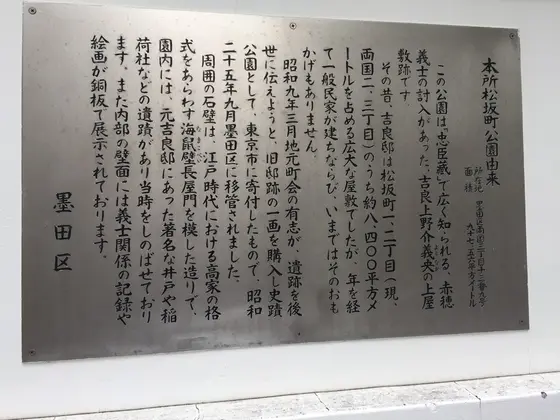 本所松坂町公園由来
所在地 墨田区両国三丁目十三番九号
面積 九十七・五六平方メートル
この公園は「忠臣蔵」で広く知られる、赤穂
義士の討入があった、吉良上野介義央の上屋
敷跡です。
その昔、吉良邸は松坂町一、二丁目(現、
両国二、三丁目)のうち約八、四〇〇平方メ
ートルを占める広大な屋敷でしたが、年を経
て一般民家が建ちならび、いまではそのおも
かげもありません。
昭和九年三月地元町会の有志が、遺跡を後
世に伝えようと、旧邸跡の一画を購入し史蹟
公園として、東京市に寄付したもので、昭和
二十五年九月墨田区に移管されました。
周囲の石壁は、江戸時代における高家の格
式をあらわす海鼠壁長屋門を模した造りで、
なまこ
園内には、元吉良邸にあった著名な井戸や稲
荷社などの遺蹟があり当時をしのばせており
ます。また内部の壁面には義士関係の記録や
絵画が銅板で展示されております。
墨田区